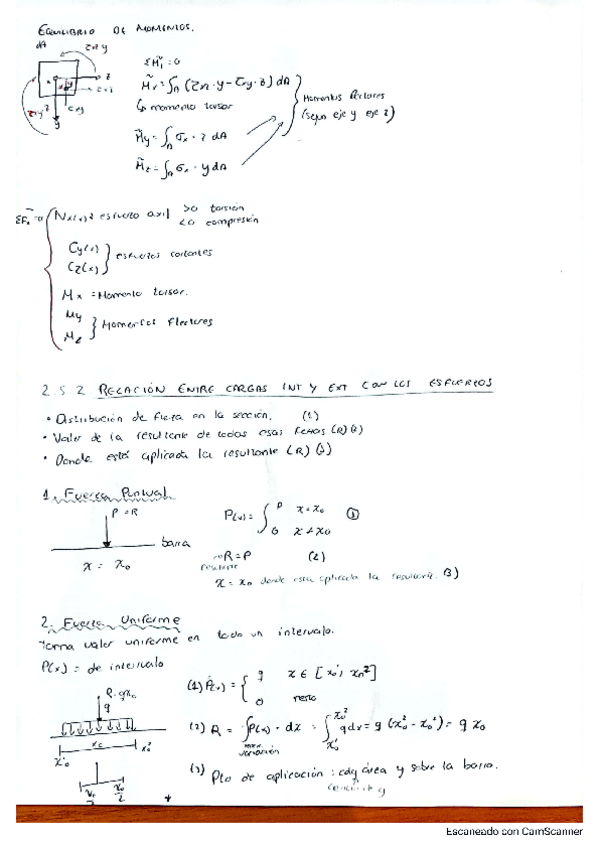 EQUILIBRIO DE MOMENTOS.
dA
τxy
z
y
ΣM̃i = 0
M̃x = ∫A (τxz · y − τxy · z) dA
↳ momento torsor
M̃y = ∫A σx · z dA
M̃z = ∫A σx · y dA
Momentos flectores
(segun eje y eje z)
Nx(x) = esfuerzo axil >0 torsión
<0 compresión
Cy(x)
Cz(x)
esfuerzos cortantes
Mx = Momento torsor.
My
Mz
Momentos Flectores
2.5.2 RELACIÓN ENTRE CARGAS INT Y EXT CON LOS ESFUERZOS
• Distribución de fuerza en la sección. (1)
• Valor de la resultante de todas esas fuerzas (R) (2)
• Donde está aplicada la resultante (R) (3)
1. Fuerza Puntual
P = R
barra
x = x₀
P(x) = { P x = x₀
0 x ≠ x₀
R = P (2)
resultante
x = x₀ donde esta aplicada la resultante. (3)
2. Fuerza Uniforme
Toma valor uniforme en todo un intervalo.
P(x) = de intervalo
R = qx₀
q
(1) P(x) = { q x ∈ [x₀¹, x₀²]
0 resto
(2) R = ∫ P(x) · dx = ∫ q dx = q (x₀² − x₀¹) = q x₀
variación
(3) Pto de aplicación : cdg área y sobre la barra.
x₀
x₀¹
x₀²
x₀/2
x₀/2
Escaneado con CamScanner